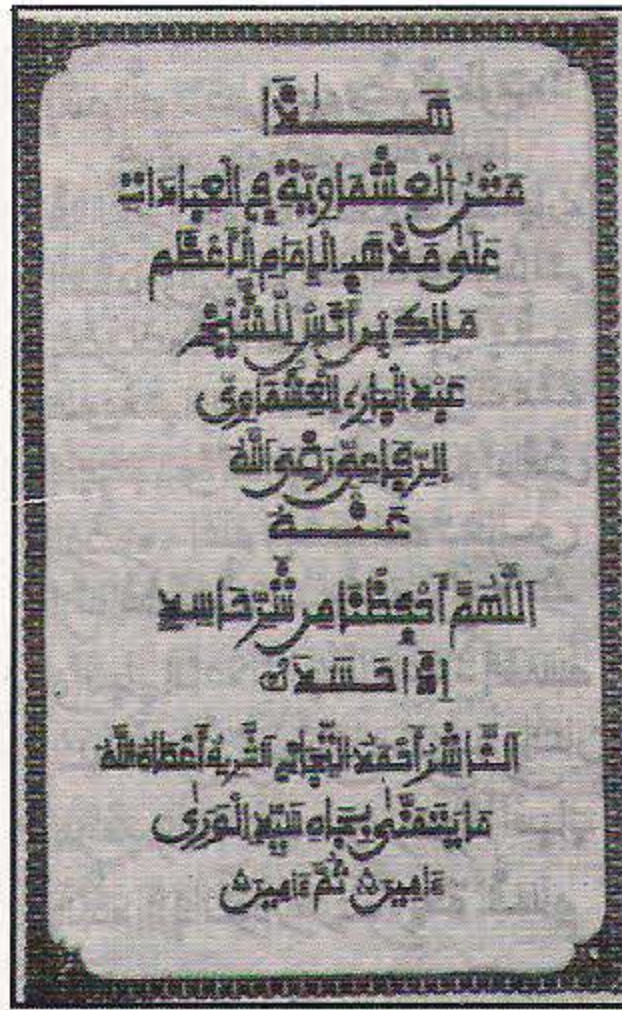 هَـٰـذَا
مَتْنُ الْعِشْمَاوِيَّةِ فِي الْعِبَادَاتِ
عَلَىٰ مَذْهَبِ الْإِمَامِ الْأَعْظَمِ
مَالِكِ بْنِ أَنَسٍ لِلشَّيْخِ
عَبْدِ الْبَارِي الْعِشْمَاوِيِّ
الرِّفَاعِيِّ رَضِيَ اللَّهُ
عَنْهُ
اَللَّهُمَّ احْفَظْنَا مِن شَرِّ حَاسِدٍ
إِذَا حَسَدَ
اَلنَّاشِرُ أَحْمَدُ التِّجَانِي أَعْطَاهُ اللَّهُ
مَا يَتَمَنَّىٰ بِجَاهِ سَيِّدِ الْوَرَىٰ
ءَامِين ثُمَّ ءَامِين